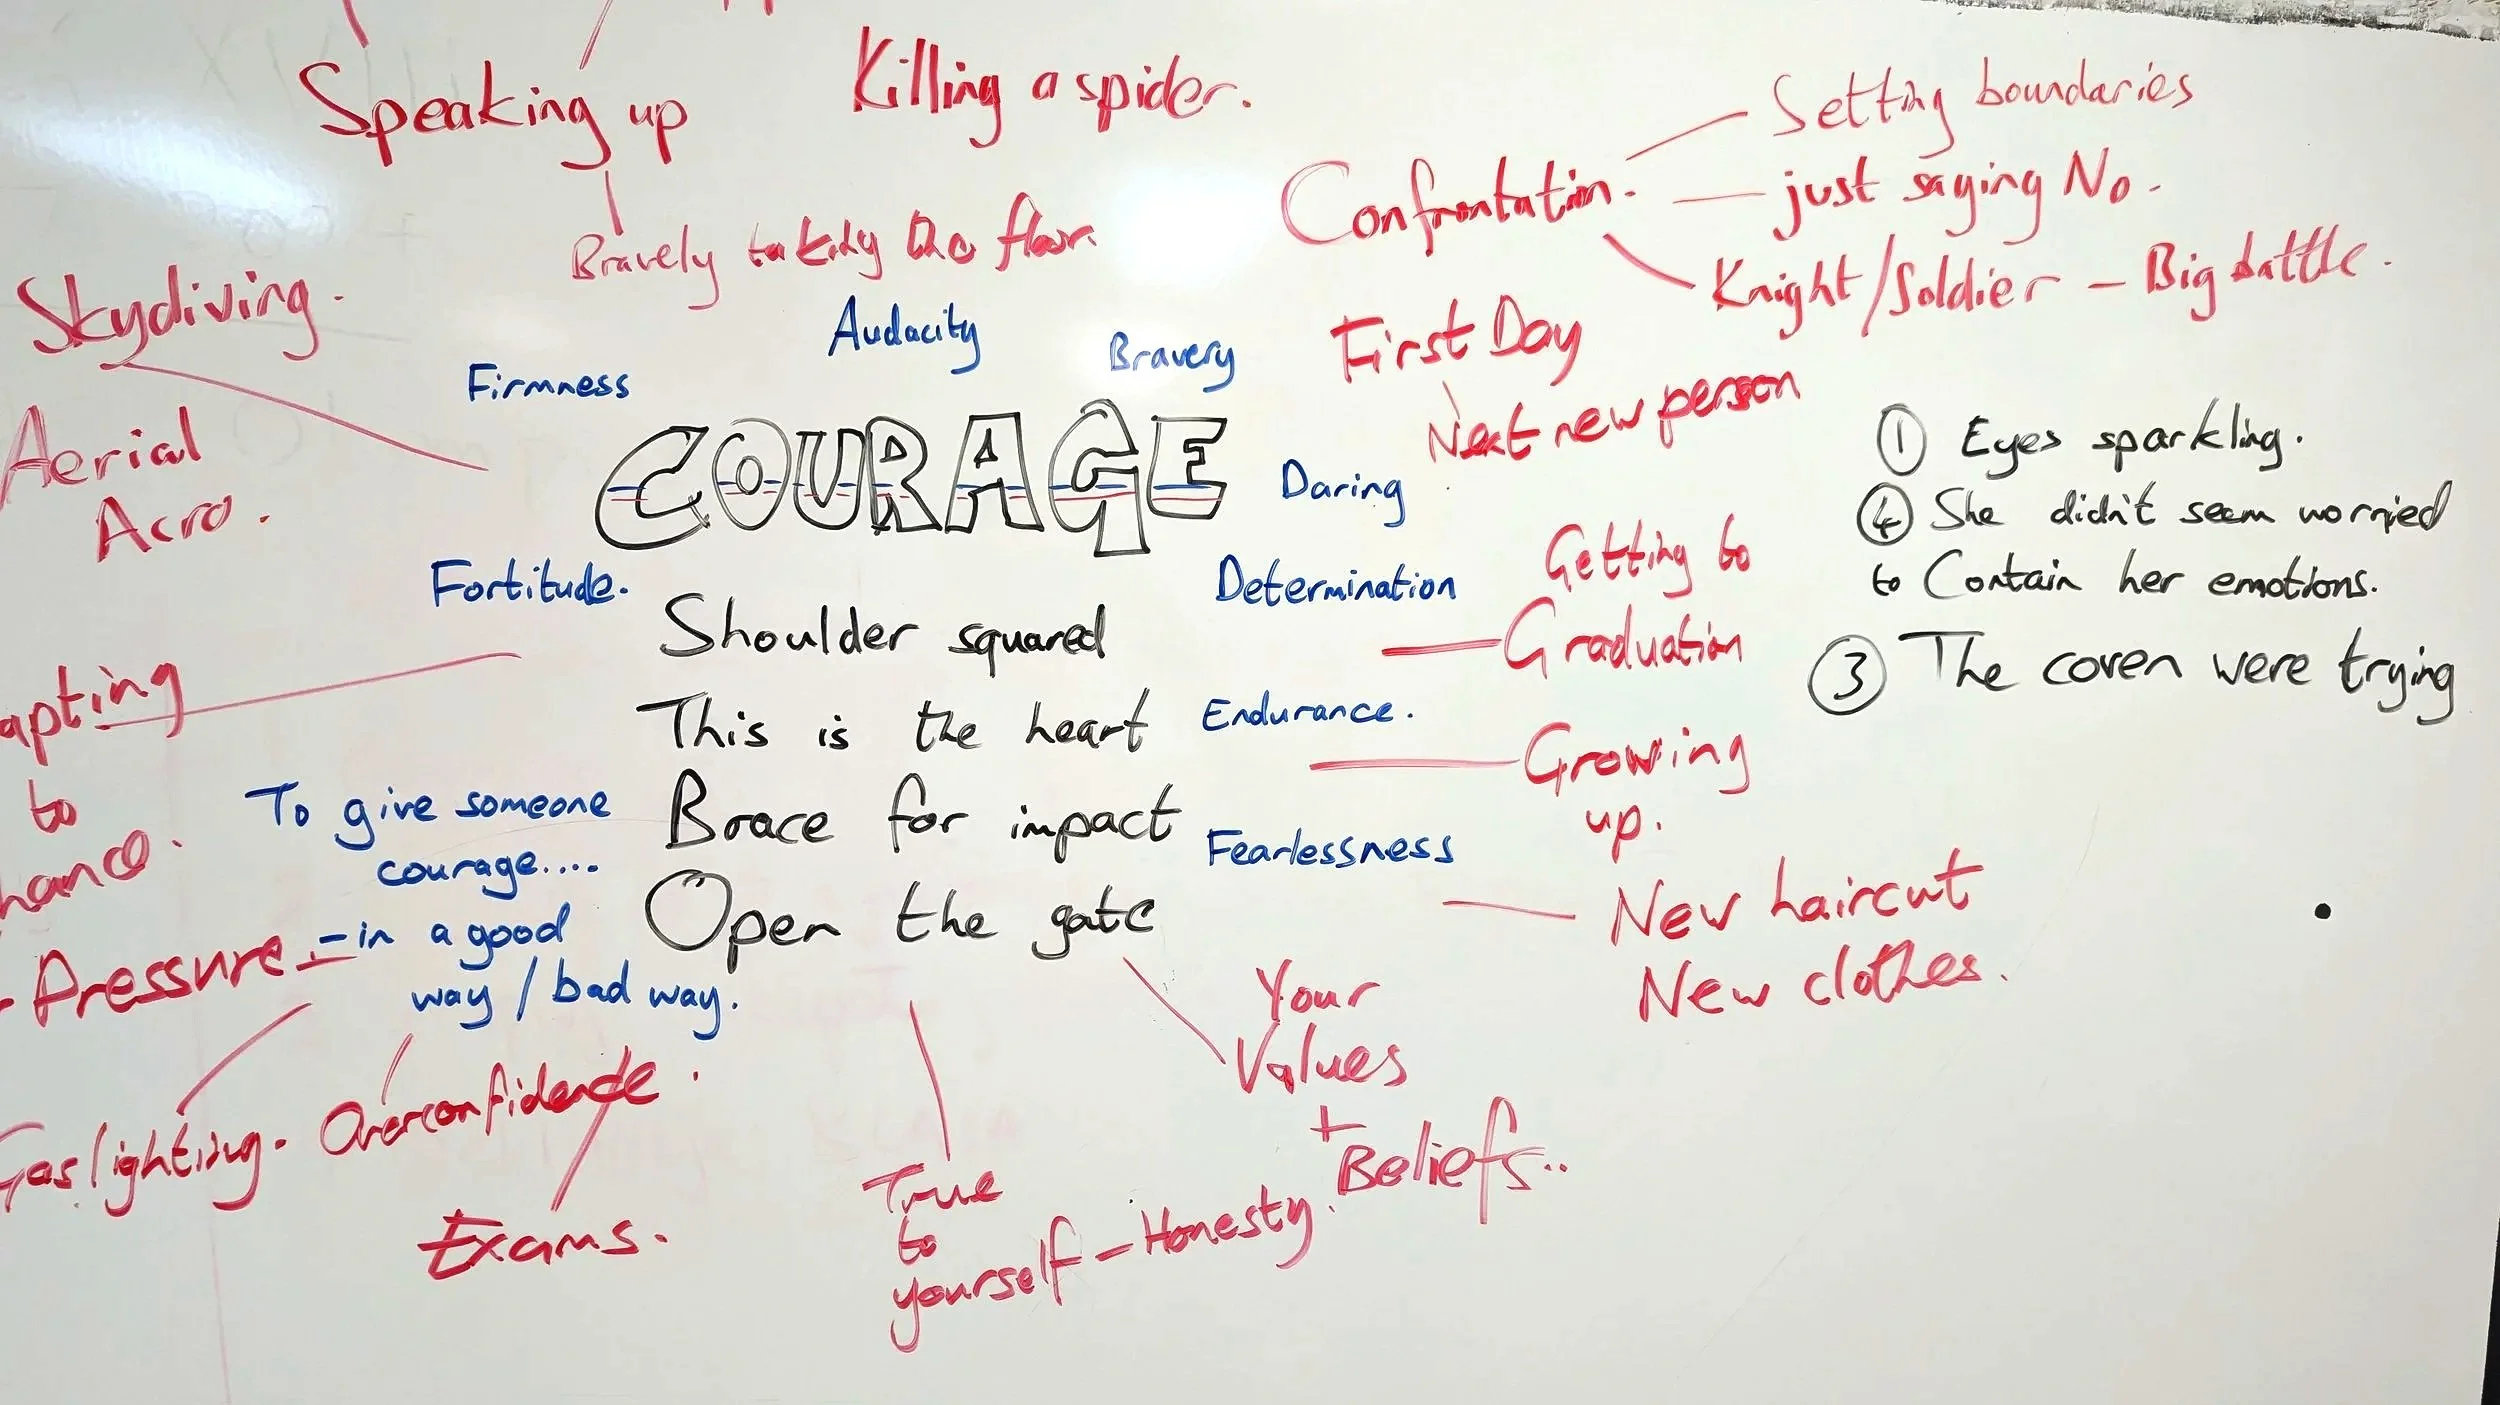 Speaking up
Killing a spider.
Bravely taking the floor.
Confrontation.
Setting boundaries
just saying No.
Knight/Soldier - Big battle.
Skydiving.
Aerial
Acro.
Firmness
Audacity
Bravery
First Day
Next new person
COURAGE
Daring
Fortitude.
Determination
Getting to
Graduation
Shoulder squared
This is the heart
Brace for impact
Open the gate
Endurance.
Growing
up.
Fearlessness
New haircut
New clothes.
① Eyes sparkling.
④ She didn't seem worried
to Contain her emotions.
③ The coven were trying
apting
to
hance.
To give someone
courage....
- in a good
way / bad way.
- Pressure -
Gaslighting.
Overconfidence.
Exams.
True
to
yourself - Honesty.
Your
Values
+
Beliefs..